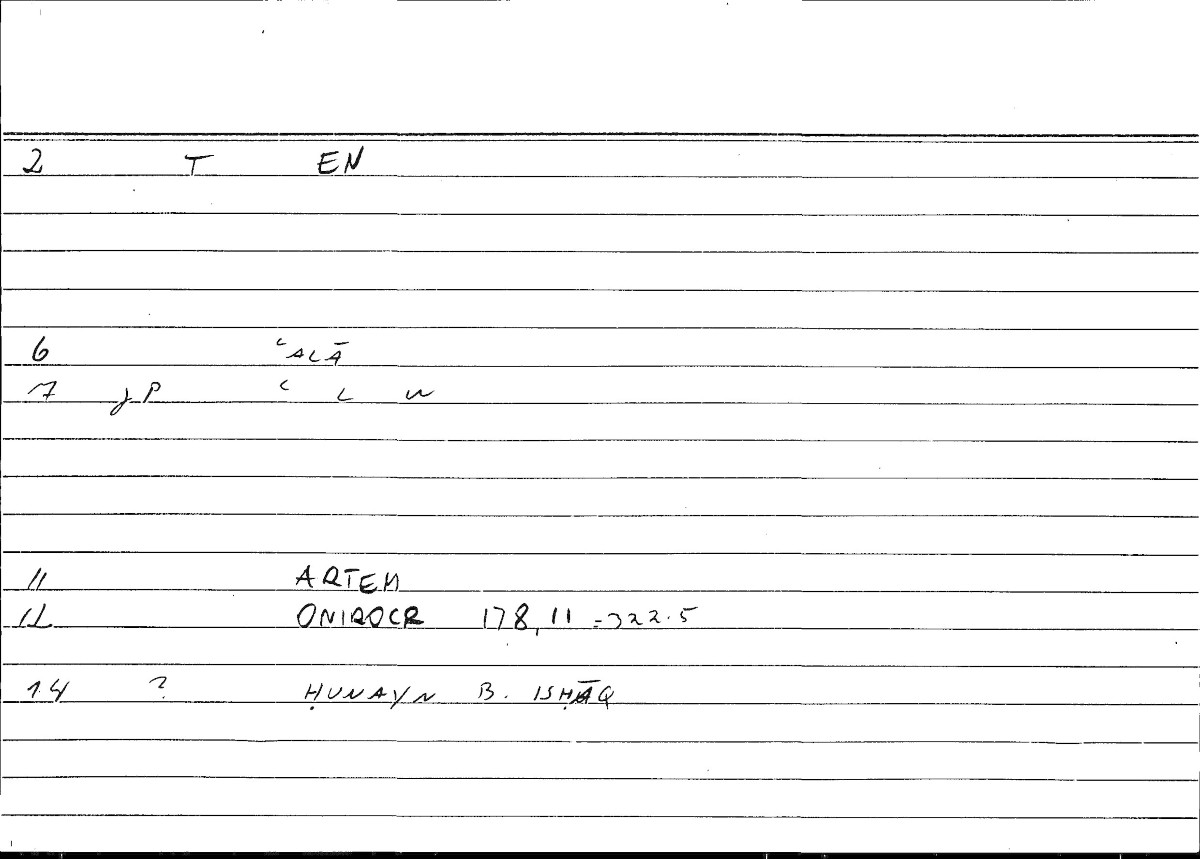 2 T EN
6 ʿALĀ
7 jP ʿ L W
11 ARTEM
12 ONIROCR 178,11 = 322.5
14 ? ḤUNAYN B. ISḤĀQ